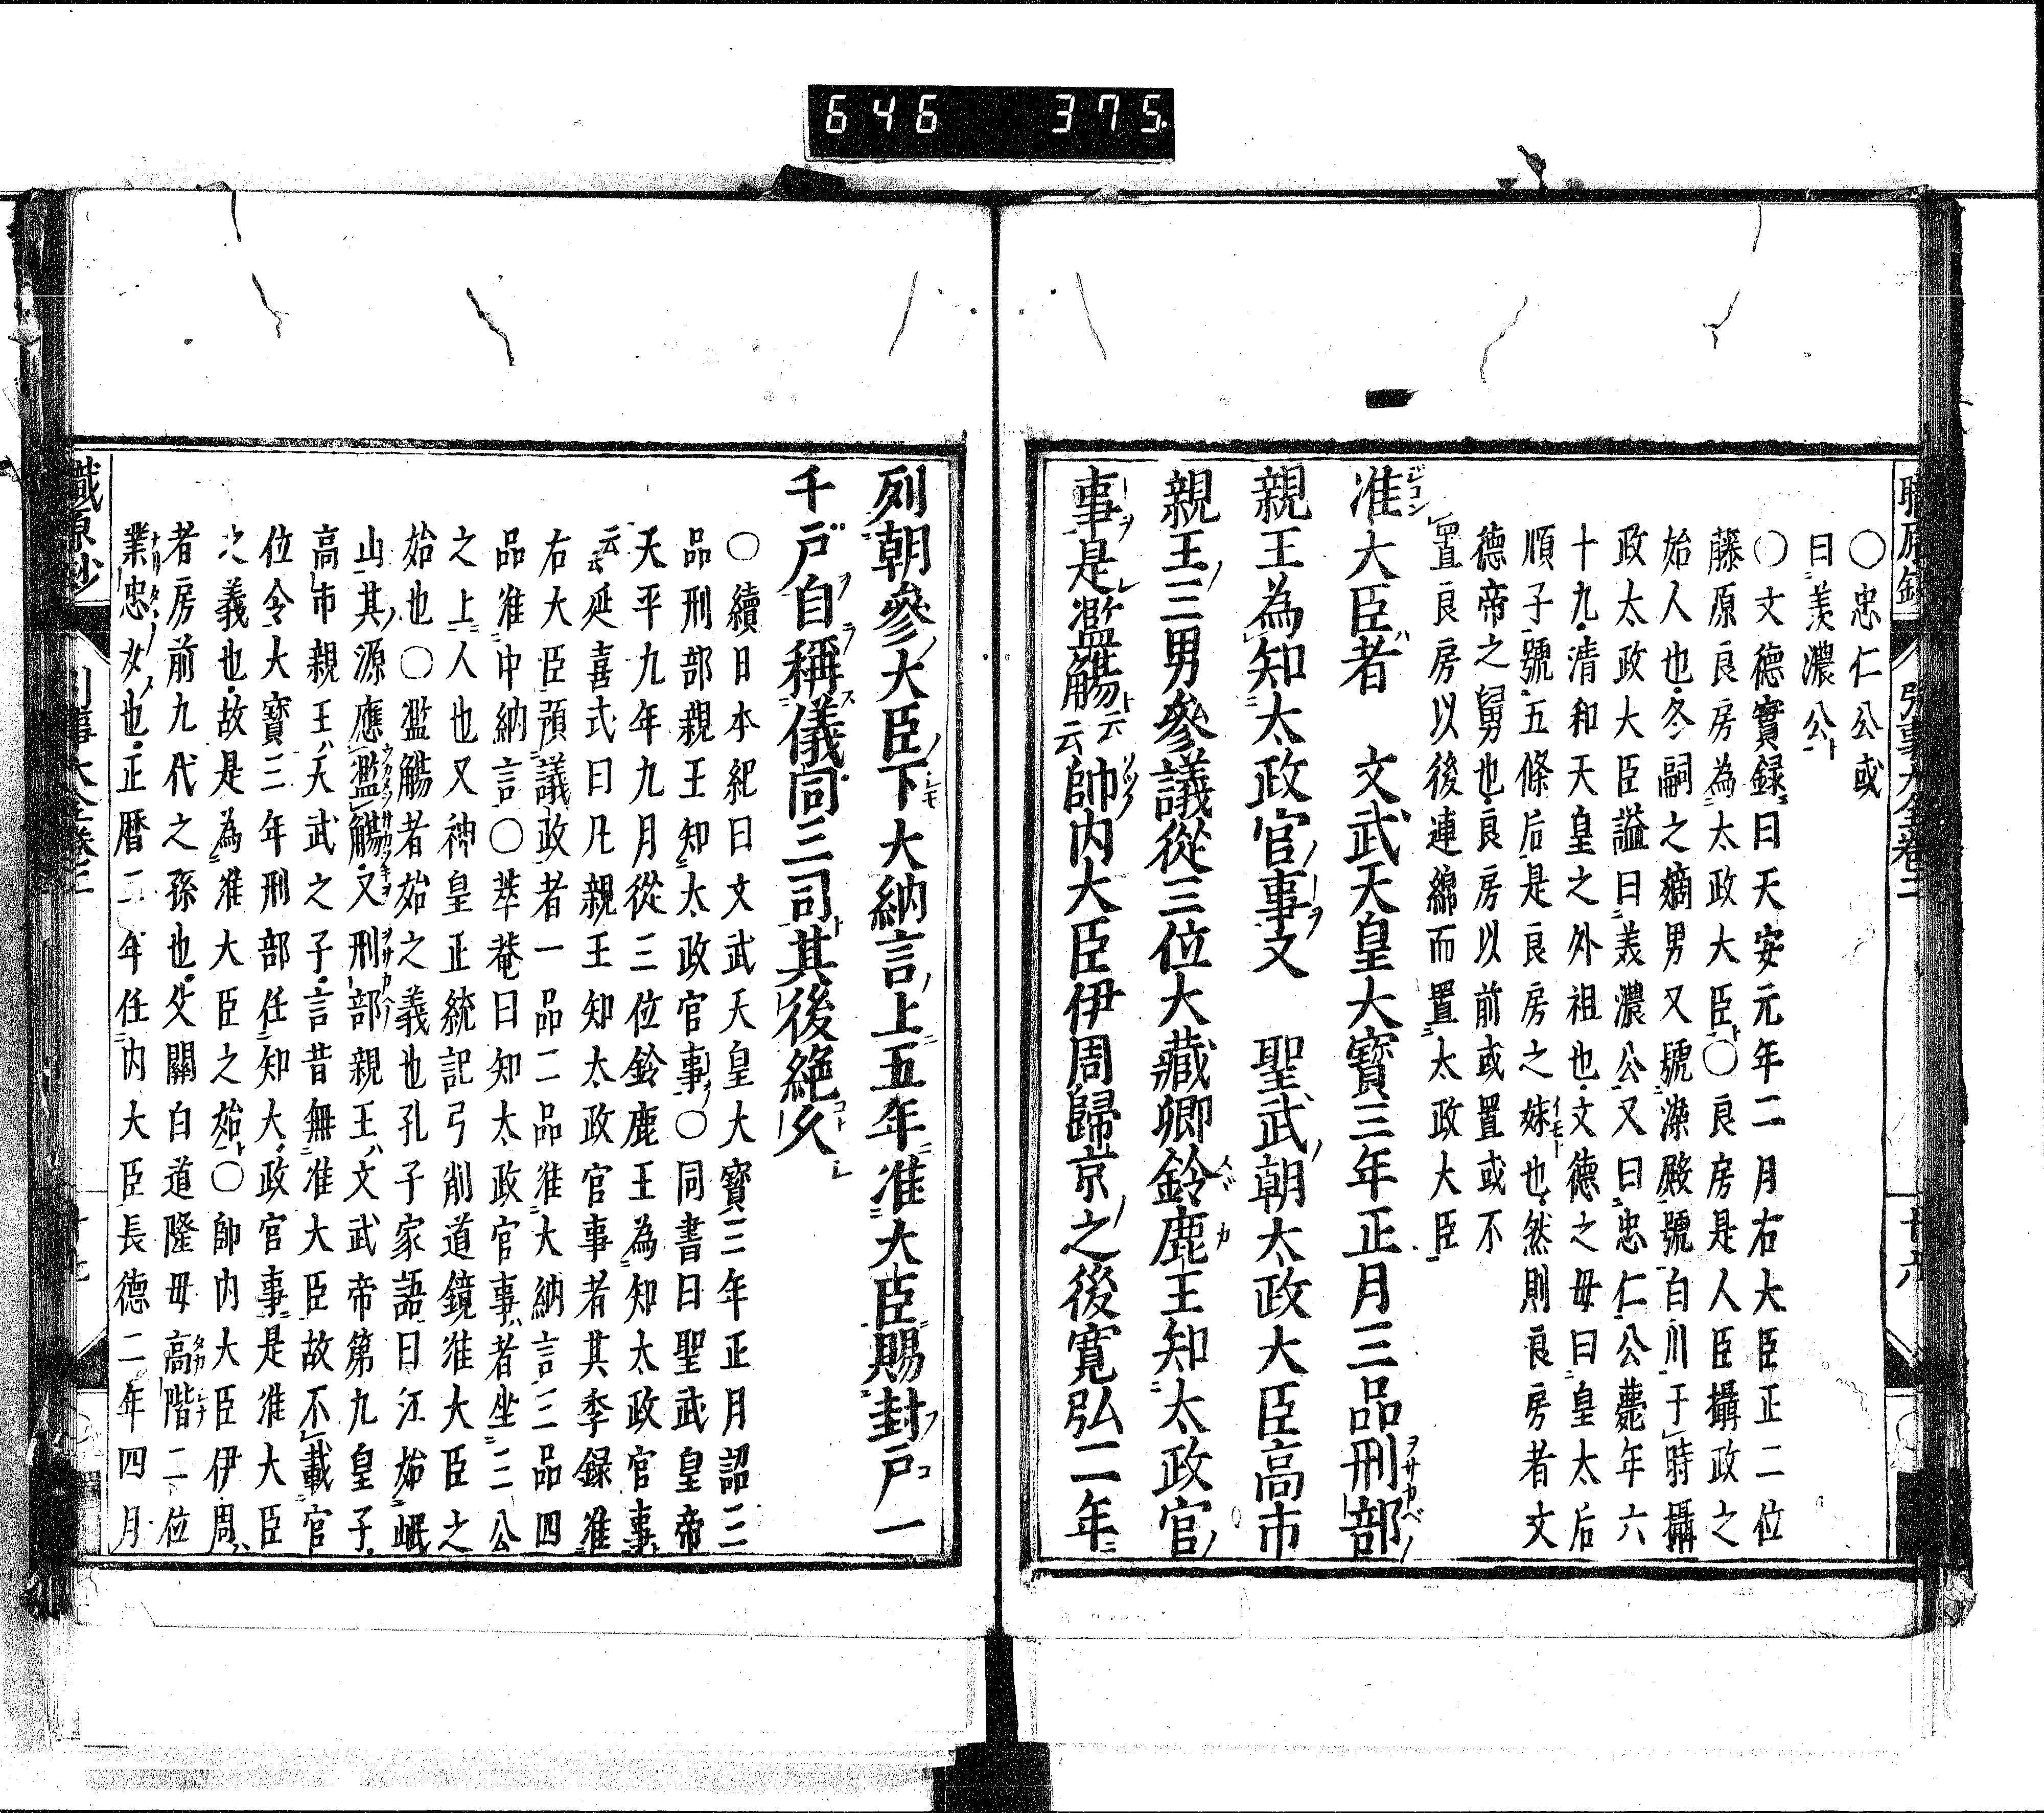 646 375
〇忠仁公或
曰美濃公
〇文德實録曰天安元年二月右大臣正二位
藤原良房為太政大臣〇良房是人臣攝政之
始人也冬嗣之嫡男又號染殿號白川于時攝
政太政大臣謚曰美濃公又曰忠仁公薨年六
十九清和天皇之外祖也文德之母曰皇太后
順子號五條后是良房之妹也然則良房者文
德帝之舅也良房以前或置或不
置良房以後連綿而置太政大臣
准大臣者 文武天皇大寶三年正月三品刑部
親王為知太政官事又 聖武朝太政大臣高市
親王三男參議從三位大藏卿鈴鹿王知太政官
事是濫觴云云帥内大臣伊周歸京之後寬弘二年
列朝參大臣下大納言上五年准大臣賜封戸一
千戸自稱儀同三司其後絶久
〇續日本紀曰文武天皇大寶三年正月詔三
品刑部親王知太政官事〇同書曰聖武皇帝
天平九年九月從三位鈴鹿王為知太政官事
云云延喜式曰凡親王知太政官事者其季録准
右大臣預議政者一品二品准大納言三品四
品准中納言〇萃菴曰知太政官事者坐三公
之上人也又神皇正統記弓削道鏡准大臣之
始也〇濫觴者始之義也孔子家語曰江始岷
山其源應濫觴又刑部親王文武帝第九皇子
高市親王天武之子言昔無准大臣故不載官
位令大寶三年刑部任知大政官事是准大臣
之義也故是為准大臣之始〇帥内大臣伊周
者房前九代之孫也父關白道隆母高階二位
業忠女也正暦二年任内大臣長德二年四月
職原鈔